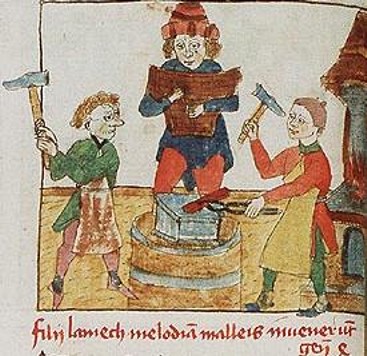 filij lamech melodiã malleis inuenerũt
geñ e